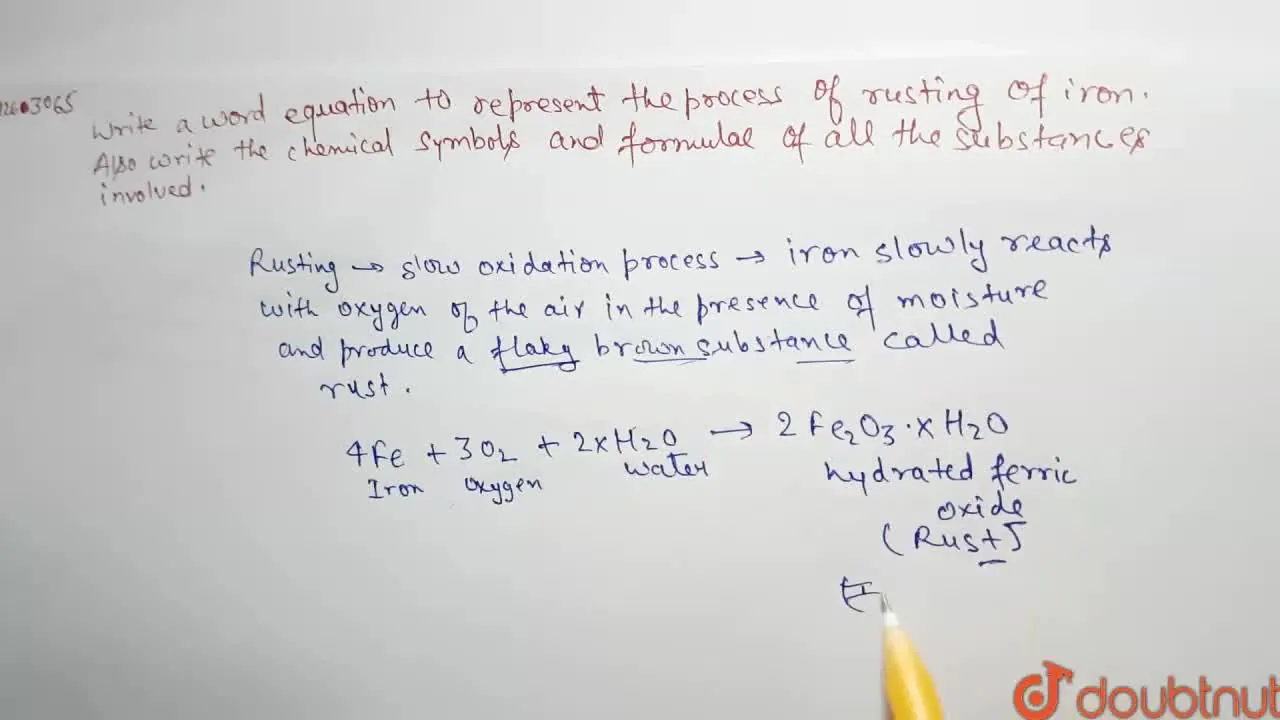 Write a word equation to represent the process of rusting of iron.
Also write the chemical symbols and formulae of all the substances
involved.
Rusting → slow oxidation process → iron slowly reacts
with oxygen of the air in the presence of moisture
and produce a flaky brown substance called
rust.
4Fe + 3O2 + 2xH2O → 2Fe2O3·xH2O
Iron oxygen water hydrated ferric
oxide
(Rust)
doubtnut